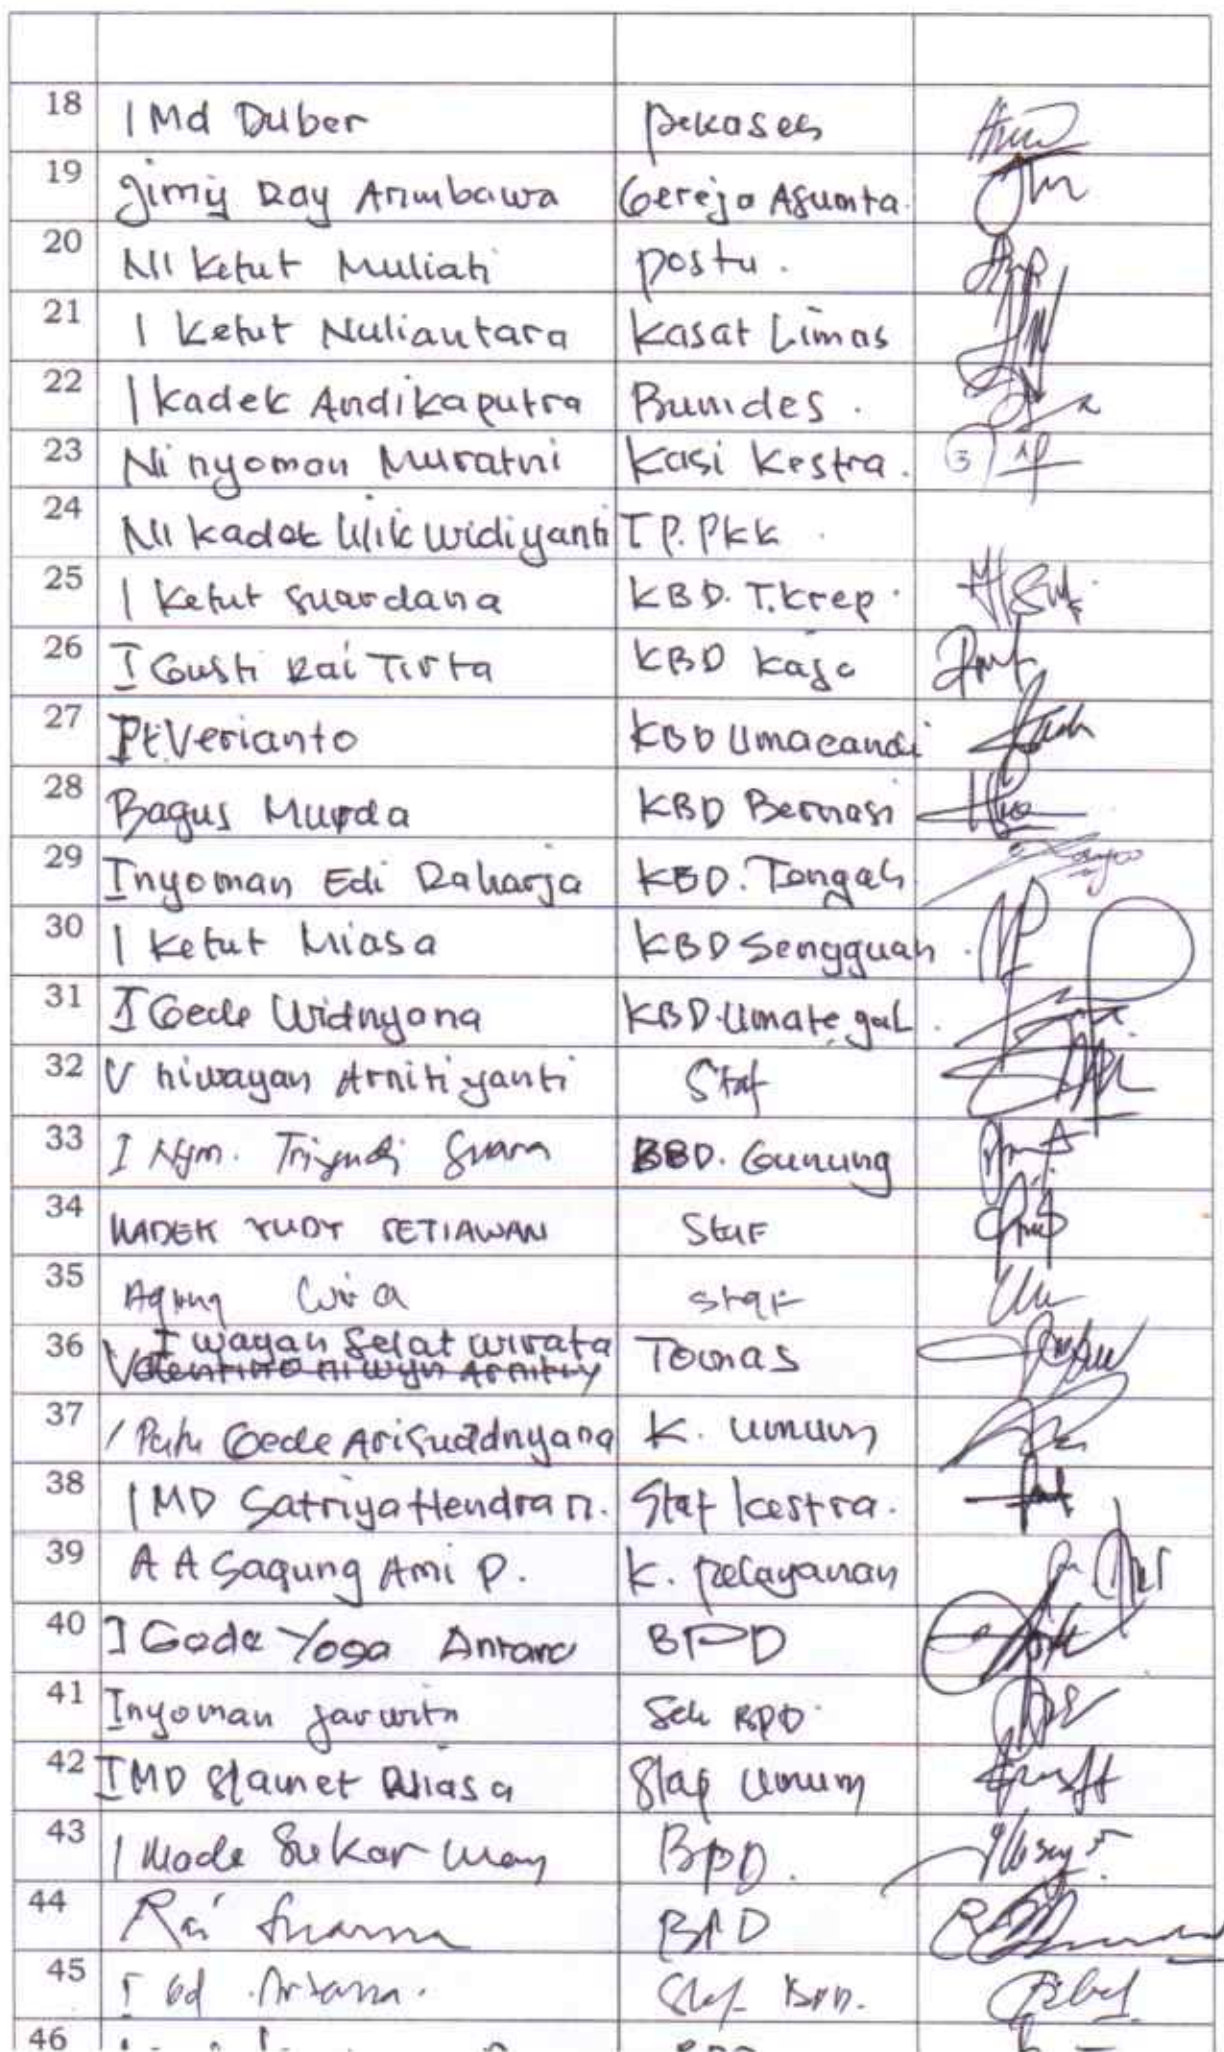 18 I Md Duber Pekaseh
19 Jimy Ray Arimbawa Gereja Asumta.
20 NI Ketut Muliati Postu.
21 I Ketut Nuliantara Kasat Limas
22 I Kadek Andikaputra Bumdes.
23 Ni nyoman Muratni Kasi Kestra. 3
24 NI Kadek Lilik Widiyanti TP. PKK
25 I Ketut Suardana KBD. T.Krep.
26 I Gusti Rai Tirta KBD Kaja
27 Pt Verianto KBD Umacandi
28 Bagus Murda KBD Bernasi
29 Inyoman Edi Raharja KBD. Tengah
30 I Ketut Miasa KBD Sengguan.
31 I Gede Widnyana KBD. Umategal.
32 V niwayan Arnitiyanti Staf
33 I Nym. Suara BBD. Gunung
34 KADEK YUDY SETIAWAN Staf
35 Agung Wira staf
36 I wayan Selat wirata Tomas
niwyn
37 I Putu Gede K. Umum
38 I MD Satriya Hendra n. Staf Kestra.
39 A A Sagung Ami P. K. Pelayanan
40 I Gede Yoga Antara BPD
41 Inyoman Jarwita Sek BPD
42 I MD Slamet Staf Umum
43 I Made Sukar BPD.
44 Rai Suarna BPD
45 I Gd. Artana. Staf BPD.
46